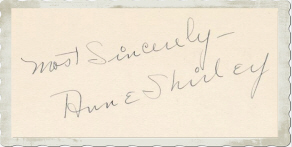 Most Sincerely –
Anne Shirley